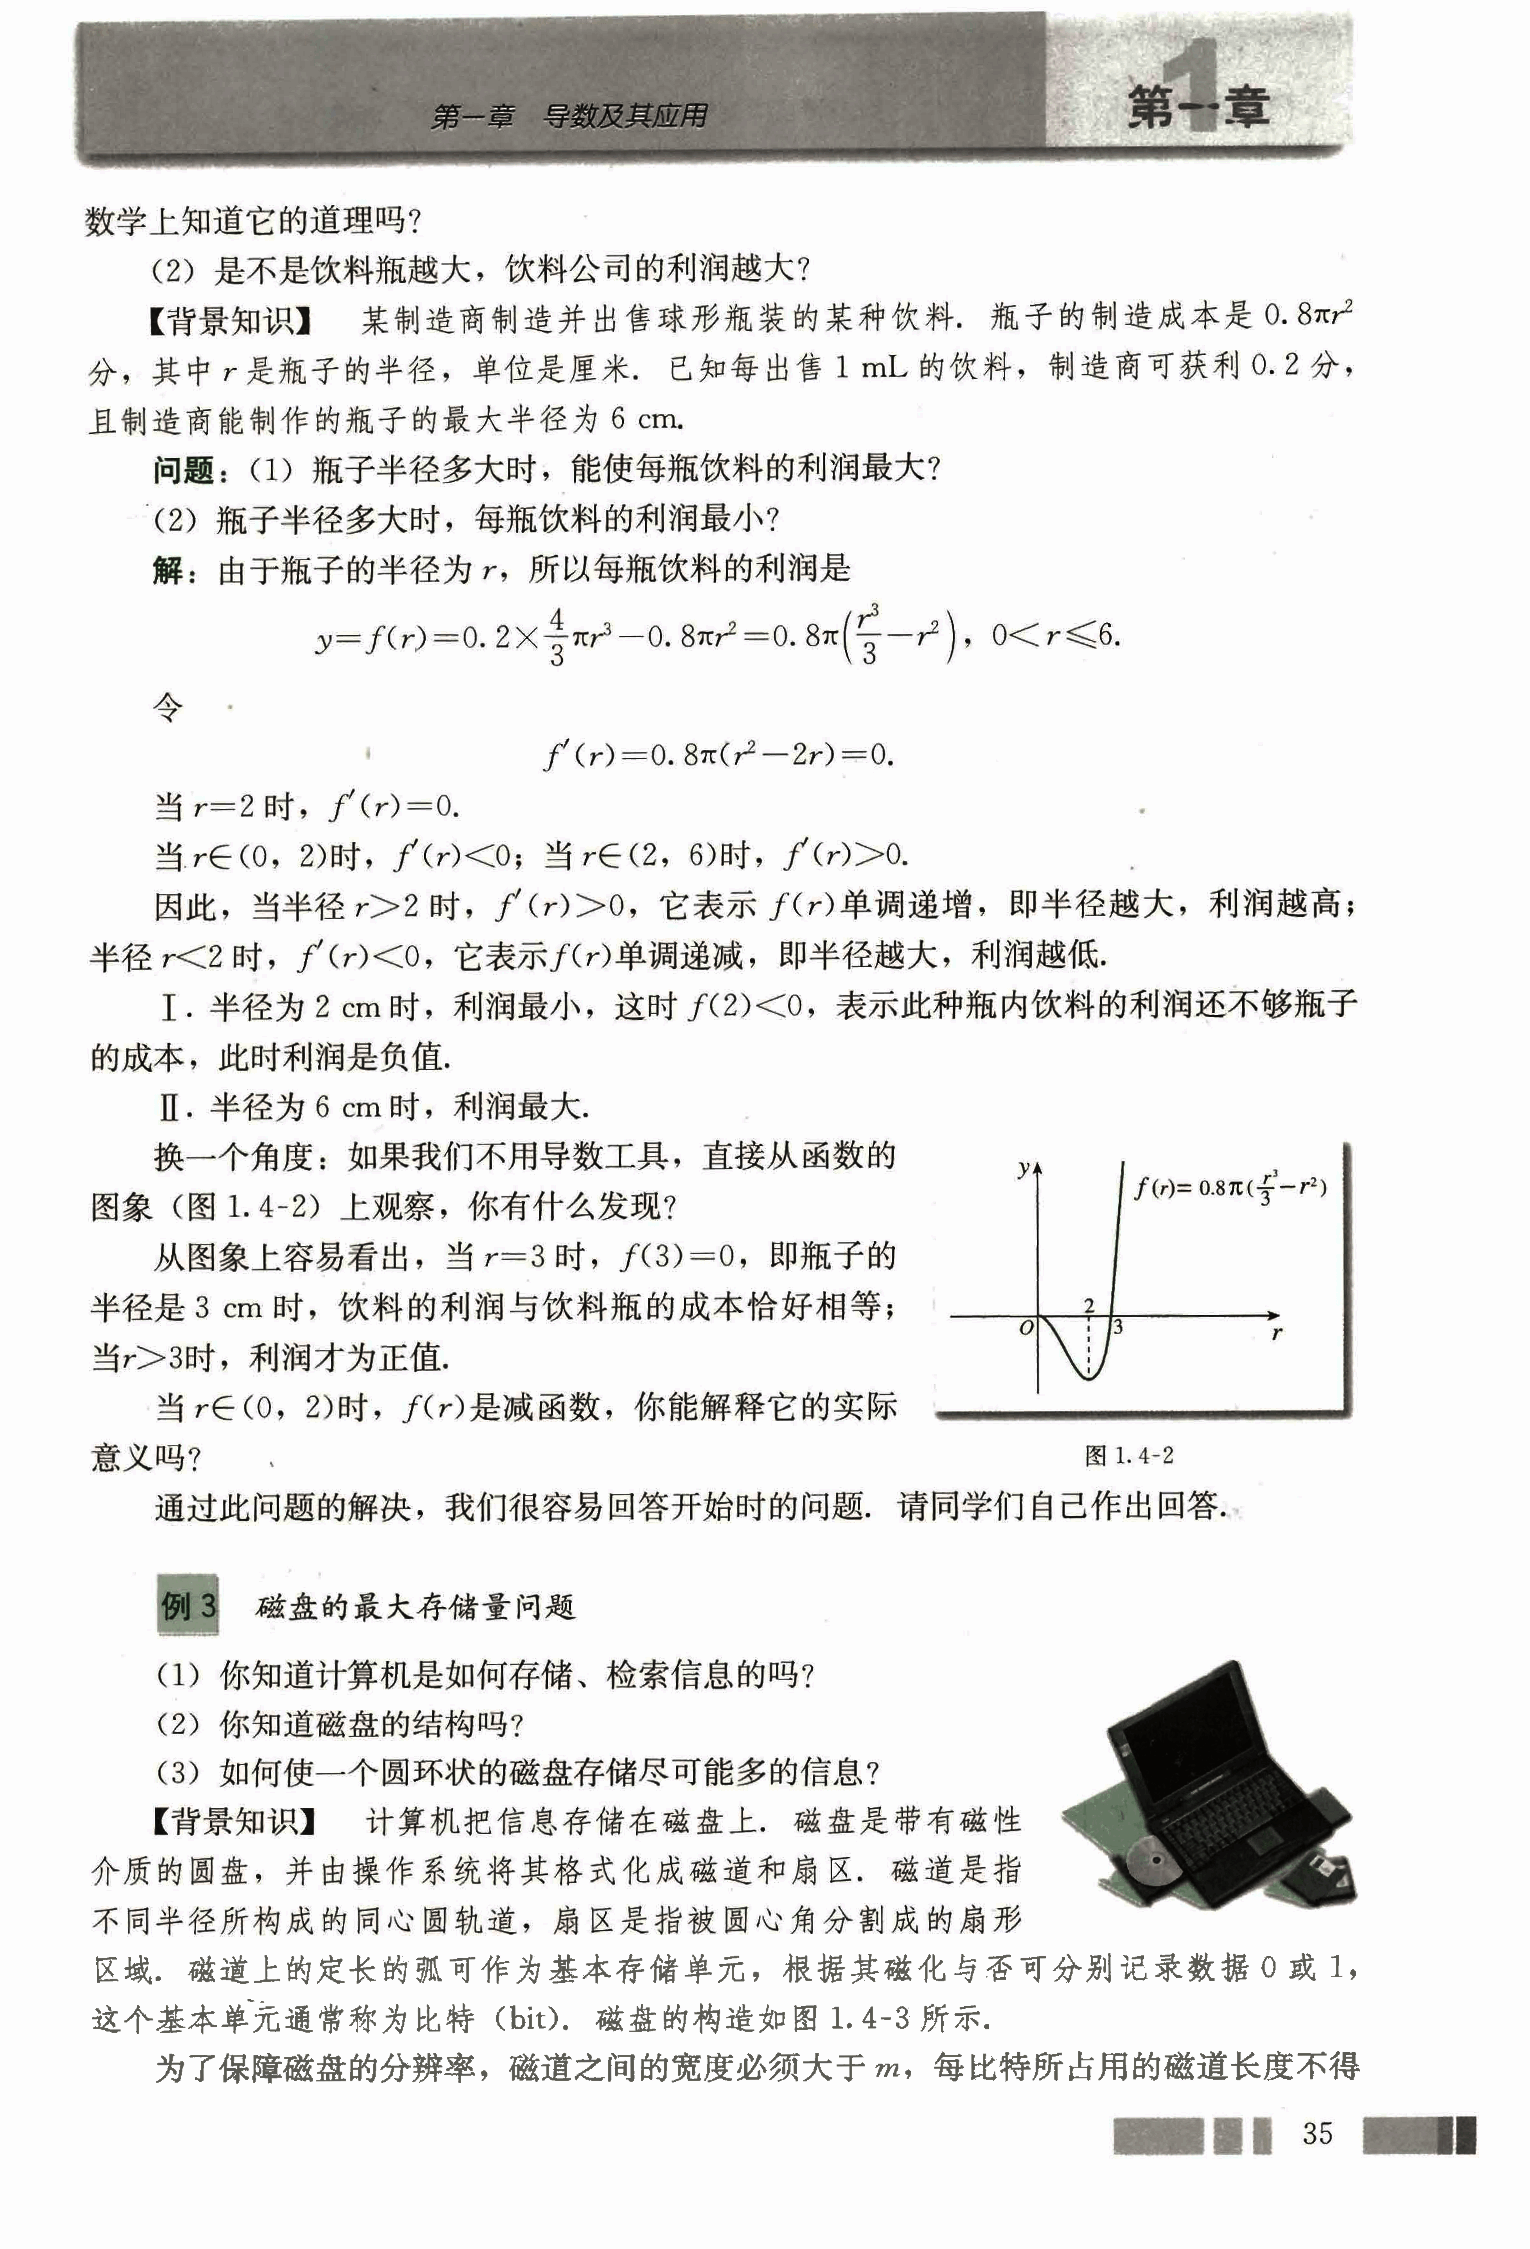 第一章 导数及其应用
第一章
数学上知道它的道理吗?
(2) 是不是饮料瓶越大,饮料公司的利润越大?
【背景知识】 某制造商制造并出售球形瓶装的某种饮料. 瓶子的制造成本是 0.8πr²
分,其中 r 是瓶子的半径,单位是厘米. 已知每出售 1 mL 的饮料,制造商可获利 0.2 分,
且制造商能制作的瓶子的最大半径为 6 cm.
问题:(1) 瓶子半径多大时,能使每瓶饮料的利润最大?
(2) 瓶子半径多大时,每瓶饮料的利润最小?
解:由于瓶子的半径为 r,所以每瓶饮料的利润是
y=f(r)=0.2×4/3πr³-0.8πr²=0.8π(r³/3-r²),0<r≤6.
令
f′(r)=0.8π(r²-2r)=0.
当 r=2 时,f′(r)=0.
当 r∈(0,2)时,f′(r)<0;当 r∈(2,6)时,f′(r)>0.
因此,当半径 r>2 时,f′(r)>0,它表示 f(r)单调递增,即半径越大,利润越高;
半径 r<2 时,f′(r)<0,它表示f(r)单调递减,即半径越大,利润越低.
Ⅰ. 半径为 2 cm 时,利润最小,这时 f(2)<0,表示此种瓶内饮料的利润还不够瓶子
的成本,此时利润是负值.
Ⅱ. 半径为 6 cm 时,利润最大.
换一个角度:如果我们不用导数工具,直接从函数的
图象(图 1.4-2)上观察,你有什么发现?
从图象上容易看出,当 r=3 时,f(3)=0,即瓶子的
半径是 3 cm 时,饮料的利润与饮料瓶的成本恰好相等;
当r>3时,利润才为正值.
当 r∈(0,2)时,f(r)是减函数,你能解释它的实际
意义吗?
y
f(r)=0.8π(r³/3-r²)
2
O
3
r
图 1.4-2
通过此问题的解决,我们很容易回答开始时的问题. 请同学们自己作出回答.
例 3 磁盘的最大存储量问题
(1) 你知道计算机是如何存储、检索信息的吗?
(2) 你知道磁盘的结构吗?
(3) 如何使一个圆环状的磁盘存储尽可能多的信息?
【背景知识】 计算机把信息存储在磁盘上. 磁盘是带有磁性
介质的圆盘,并由操作系统将其格式化成磁道和扇区. 磁道是指
不同半径所构成的同心圆轨道,扇区是指被圆心角分割成的扇形
区域. 磁道上的定长的弧可作为基本存储单元,根据其磁化与否可分别记录数据 0 或 1,
这个基本单元通常称为比特(bit). 磁盘的构造如图 1.4-3 所示.
为了保障磁盘的分辨率,磁道之间的宽度必须大于 m,每比特所占用的磁道长度不得
35